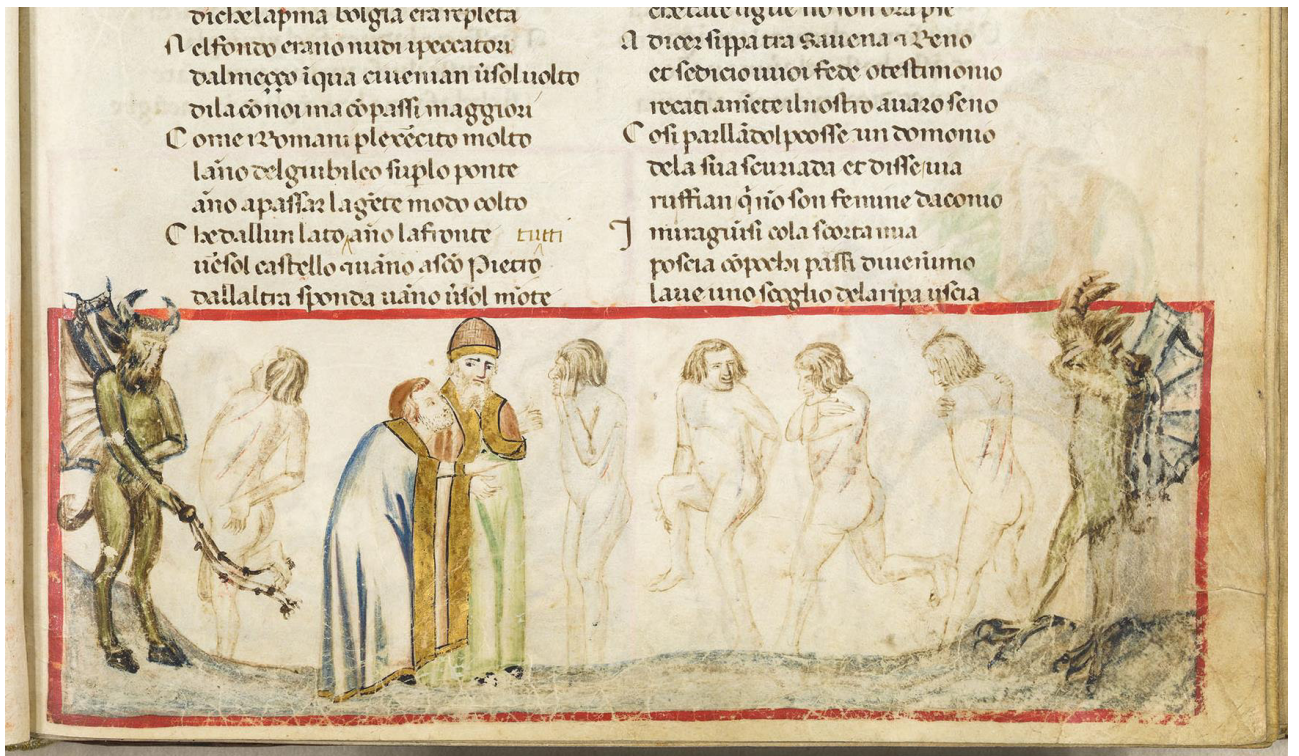 dichelapma bolgia era repleta
Nelfondo erano nudi ipeccatori
dalmeçço iqua civenian v̄sol uolto
dila cōnoi ma cōpassi maggiori
Come iRomani plexēcito molto
lāno delgiubileo sup̄lo ponte
āno apassar lagēte modo colto
Che dallun lato āno lafronte tutti
ūesol castello ⁊uāno asc̄o Pietro
dallaltra sponda uāno ūsol mōte
che tāte līgue nō son ora p̄se
A dicer sippa tra Sauena ⁊ Reno
et sedicio uuoi fede otestimonio
recati amēte ilnostro auaro seno
Cosi parllādol pcosse un domonio
dela sua scuriada et disse uia
ruffian q̄ nō son femine daconio
I miragūsi cola scorta mia
poscia cōpochi passi diuenimo
laue uno scoglio delaripa uscia